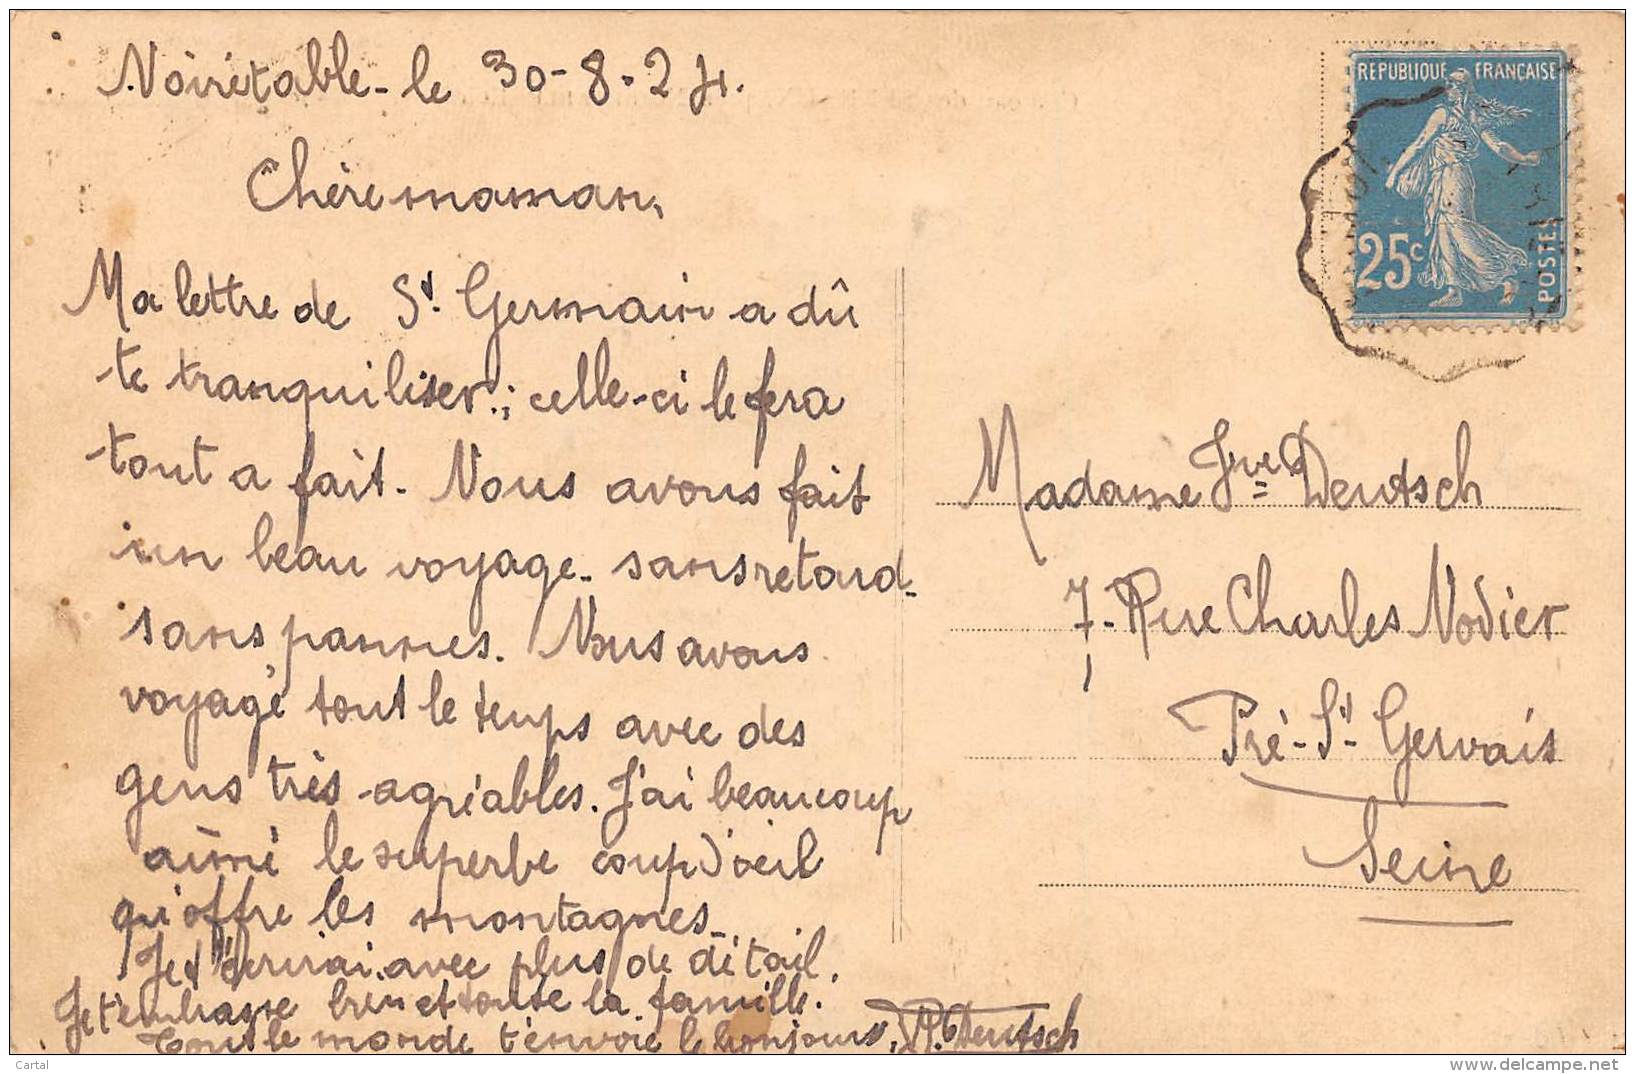 Noirétable - le 30-8-24.
Chère maman,
Ma lettre de St. Germain a dû
te tranquiliser ; celle-ci le fera
tout a fait. Nous avons fait
un beau voyage - sans retard -
sans pannes. Nous avons
voyagé tout le temps avec des
gens très agréables. J'ai beaucoup
aimé le superbe coup d'oeil
qu'offre les montagnes -
Je t'écrirai avec plus de détail.
Je t'embrasse bien et toute la famille.
Tout le monde t'envoie le bonjour. Deutsch
REPUBLIQUE FRANÇAISE
25c
POSTES
Madame Jne Deutsch
7, Rue Charles Nodier
Pré-St-Gervais
Seine
Cartal
http://www.delcampe.net